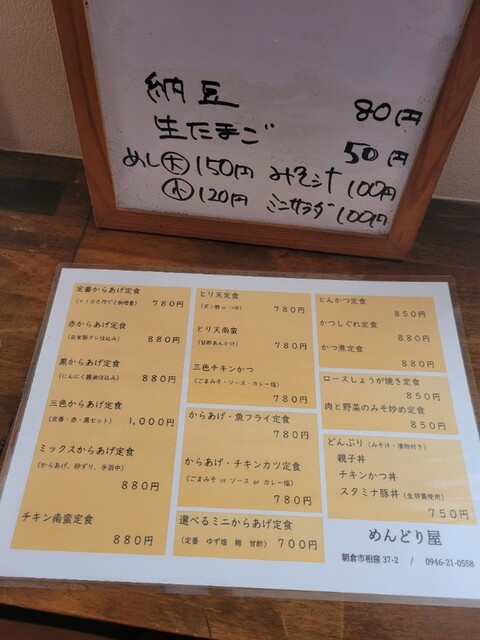 納豆 80円
生たまご 50円
めし大 150円 みそ汁 100円
小 120円 ミニサラダ 100円
定番からあげ定食
(+100円で2個増量) 780円
赤からあげ定食
(自家製ダレ仕込み) 880円
黒からあげ定食
(にんにく醤油仕込み) 880円
三色からあげ定食
(定番・赤・黒セット) 1,000円
ミックスからあげ定食
(からあげ、砂ずり、手羽中)
880円
チキン南蛮定食
880円
とり天定食
(ポン酢 or つゆ) 780円
とり天南蛮
(甘酢あんかけ) 780円
三色チキンかつ
(ごまみそ・ソース・カレー塩)
780円
からあげ・魚フライ定食
780円
からあげ・チキンカツ定食
(ごまみそ or ソース or カレー塩)
780円
選べるミニからあげ定食
(定番 ゆず塩 梅 甘酢) 700円
とんかつ定食
850円
かつしぐれ定食
880円
かつ煮定食
880円
ロースしょうが焼き定食
850円
肉と野菜のみそ炒め定食
850円
どんぶり (みそ汁・漬物付き)
親子丼
チキンかつ丼
スタミナ豚丼 (生卵黄使用)
750円
めんどり屋
朝倉市相窪37-2 / 0946-21-0558